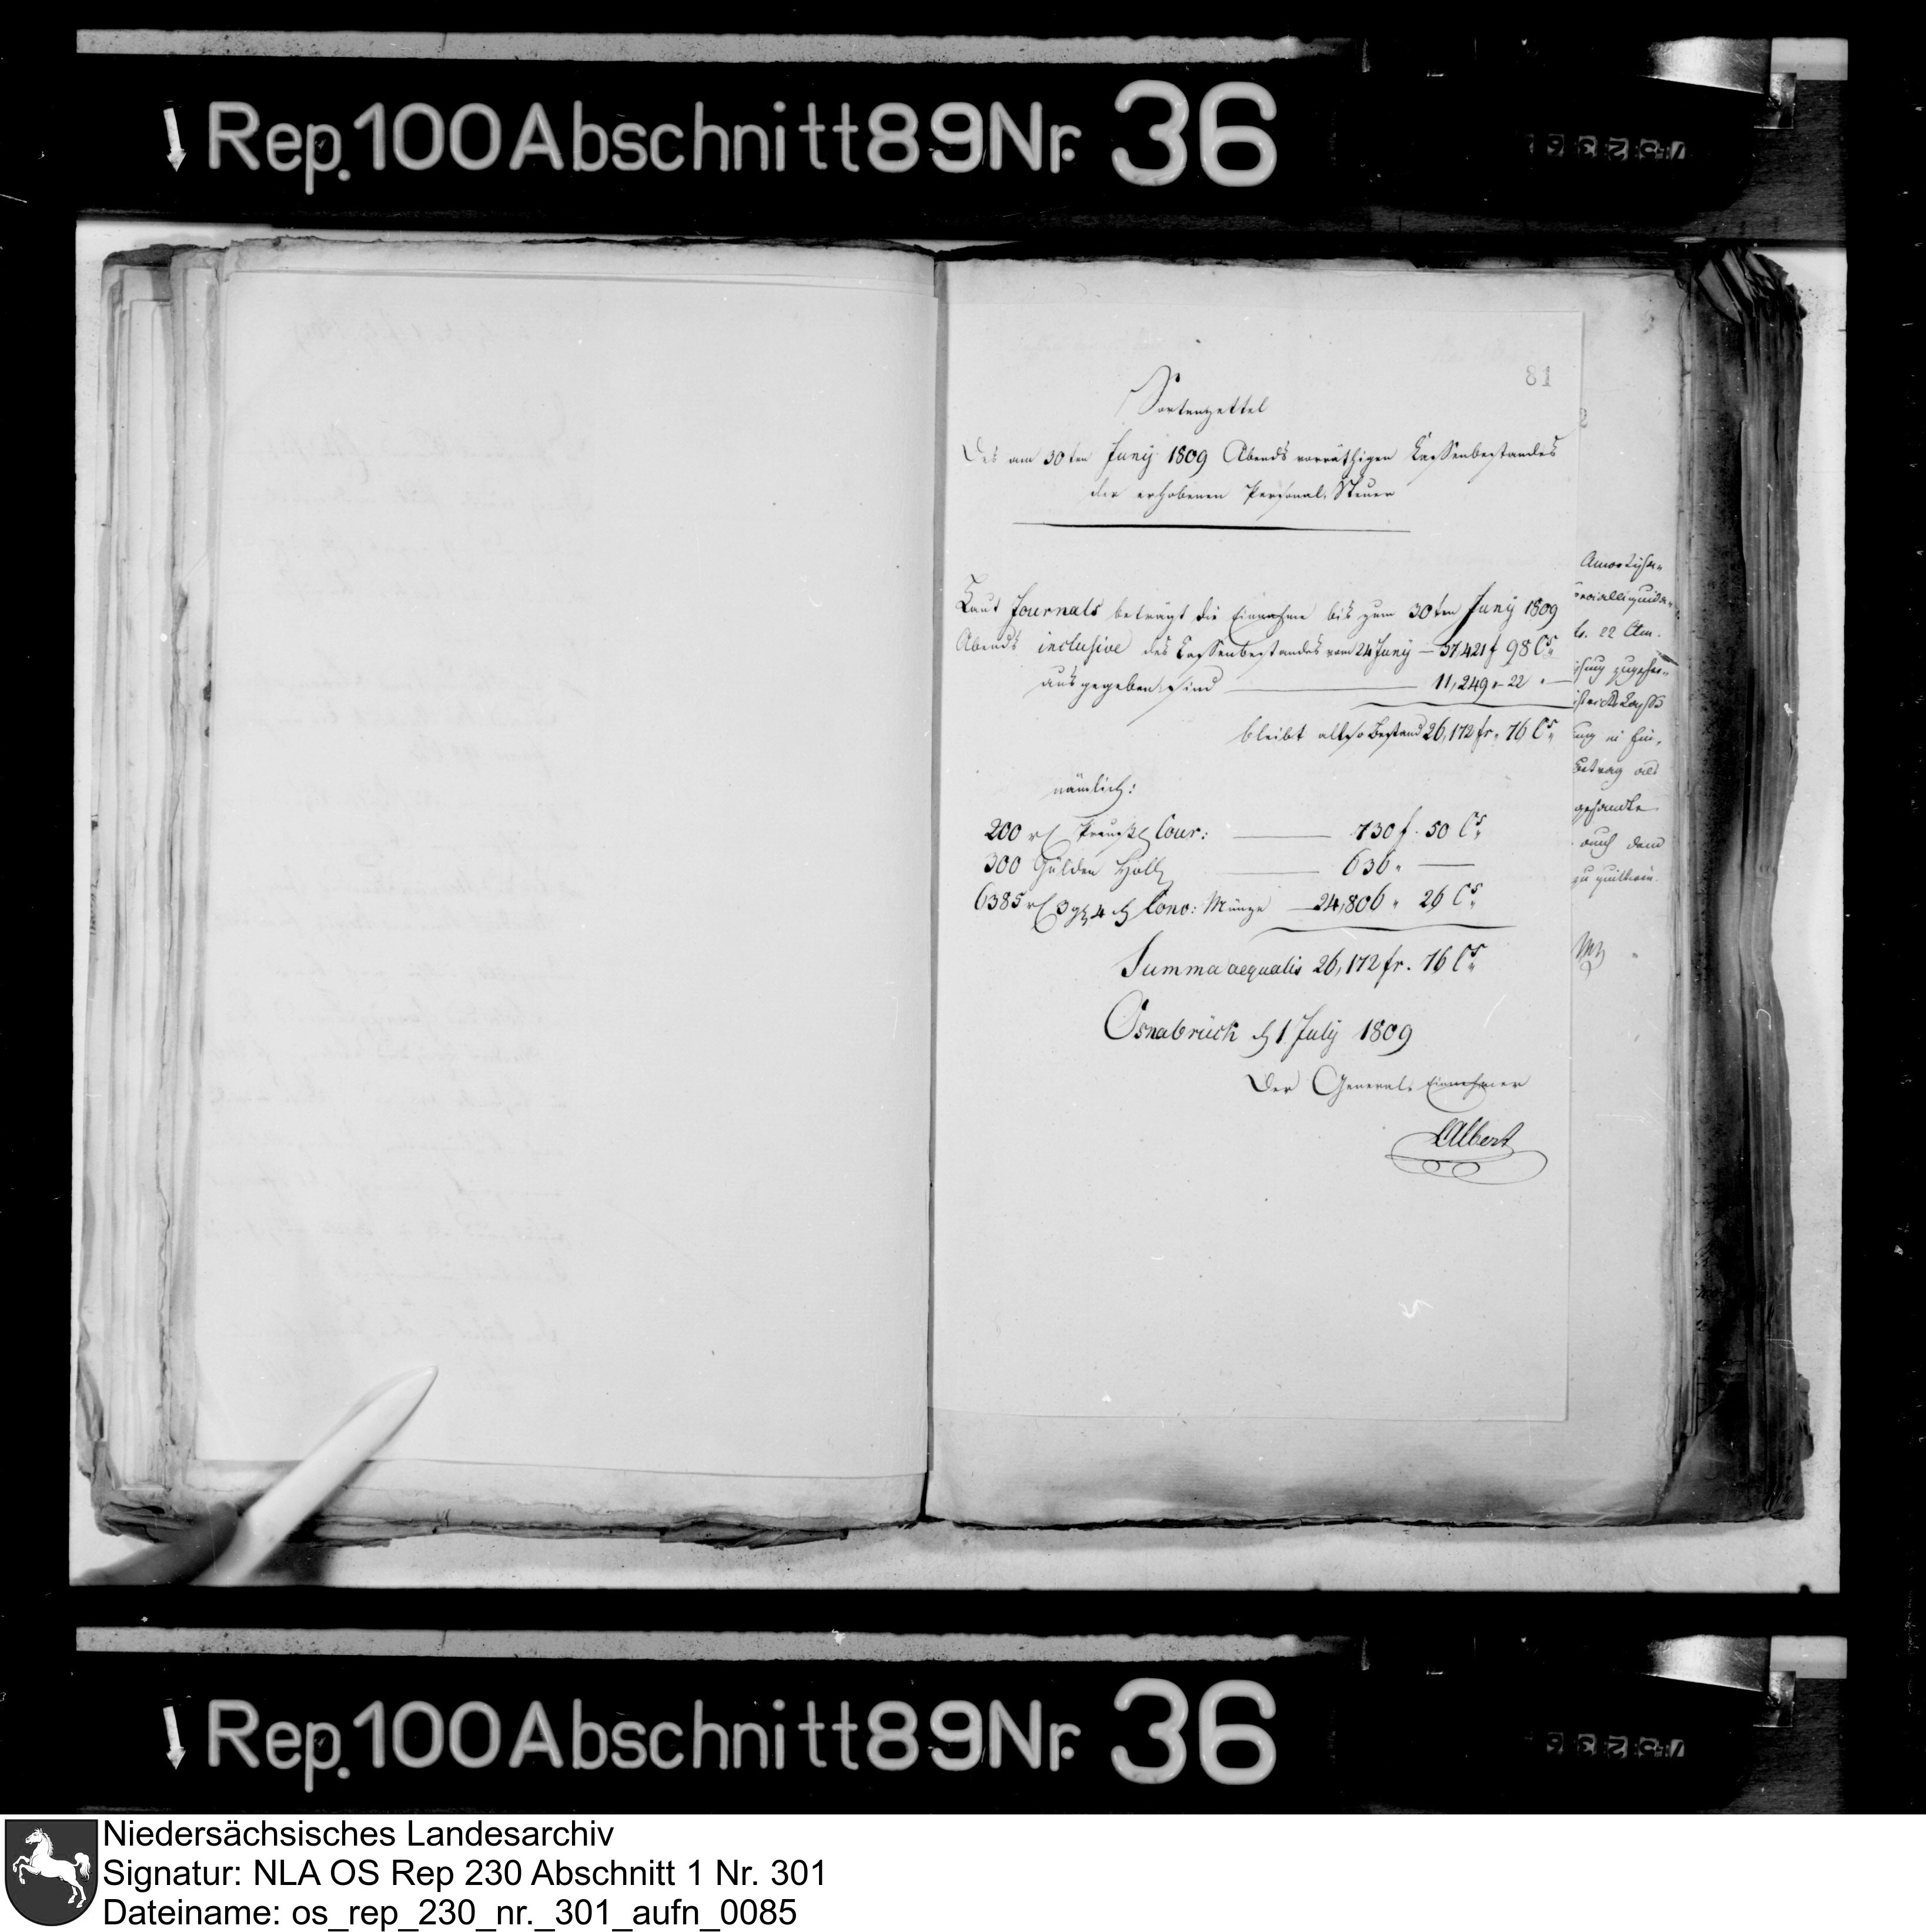 Rep. 100 Abschnitt 89 Nr. 36
81
Sortenzettel
Des am 30ten Juny 1809 Abends vorräthigen Kassenbestandes
der erhobenen Personal-Steuer
Laut Journals beträgt die Einnahme bis zum 30ten Juny 1809
Abends inclusive des Kassenbestandes vom 24 Juny — 37,421 f 98 Cs.
ausgegeben sind — 11,249 " 22 "
bleibt also Bestand 26,172 fr. 76 Cs.
nämlich:
200 rt Preuß. Cour: — 730 f. 50 Cs.
300 Gulden Holl — 636 " —
6385 rt 3 gg 4 d Conv: Münze — 24,806 " 26 Cs.
Summa aequalis 26,172 fr. 76 Cs.
Osnabrück d 1 July 1809
Der General-Einnehmer
LAlbert
Amortisa-
22 Am.
Betrag als
gesandte
auch dem
zu quittiren.
Rep. 100 Abschnitt 89 Nr. 36
Niedersächsisches Landesarchiv
Signatur: NLA OS Rep 230 Abschnitt 1 Nr. 301
Dateiname: os_rep_230_nr._301_aufn_0085